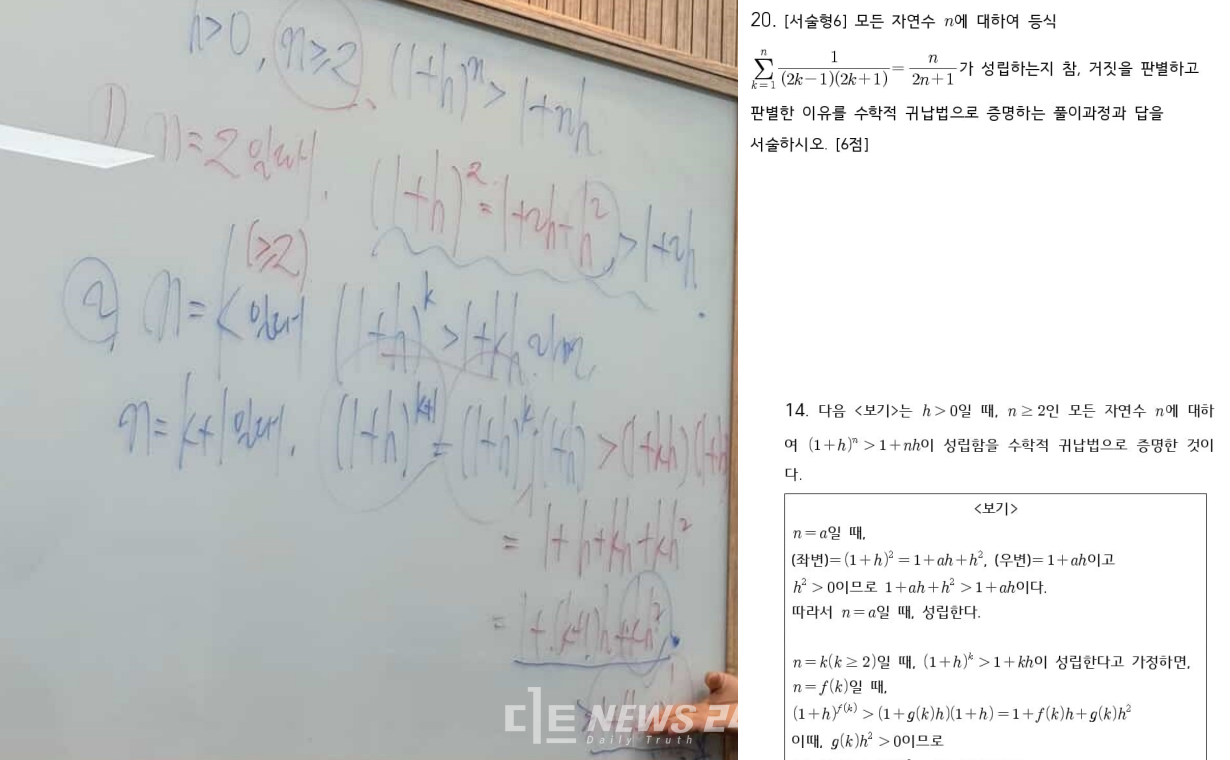 h>0, n≥2. (1+h)ⁿ > 1+nh
1) n=2일때. (1+h)² = 1+2h+h² > 1+2h
(≥2)
2) n=k일때 (1+h)ᵏ > 1+kh 이면,
n=k+1일때. (1+h)ᵏ⁺¹ = (1+h)ᵏ·(1+h) > (1+kh)(1+h)
= 1+h+kh+kh²
= 1+(k+1)h+kh²
디트 NEWS 24
Daily Truth
20. [서술형6] 모든 자연수 n에 대하여 등식
∑ₖ₌₁ⁿ 1/((2k−1)(2k+1)) = n/(2n+1) 가 성립하는지 참, 거짓을 판별하고
판별한 이유를 수학적 귀납법으로 증명하는 풀이과정과 답을
서술하시오. [6점]
14. 다음 <보기>는 h>0일 때, n≥2인 모든 자연수 n에 대하
여 (1+h)ⁿ > 1+nh이 성립함을 수학적 귀납법으로 증명한 것이
다.
<보기>
n=a일 때,
(좌변)=(1+h)²=1+ah+h², (우변)=1+ah이고
h²>0이므로 1+ah+h²>1+ah이다.
따라서 n=a일 때, 성립한다.
n=k(k≥2)일 때, (1+h)ᵏ>1+kh이 성립한다고 가정하면,
n=f(k)일 때,
(1+h)^f(k) > (1+g(k)h)(1+h)=1+f(k)h+g(k)h²
이때, g(k)h²>0이므로